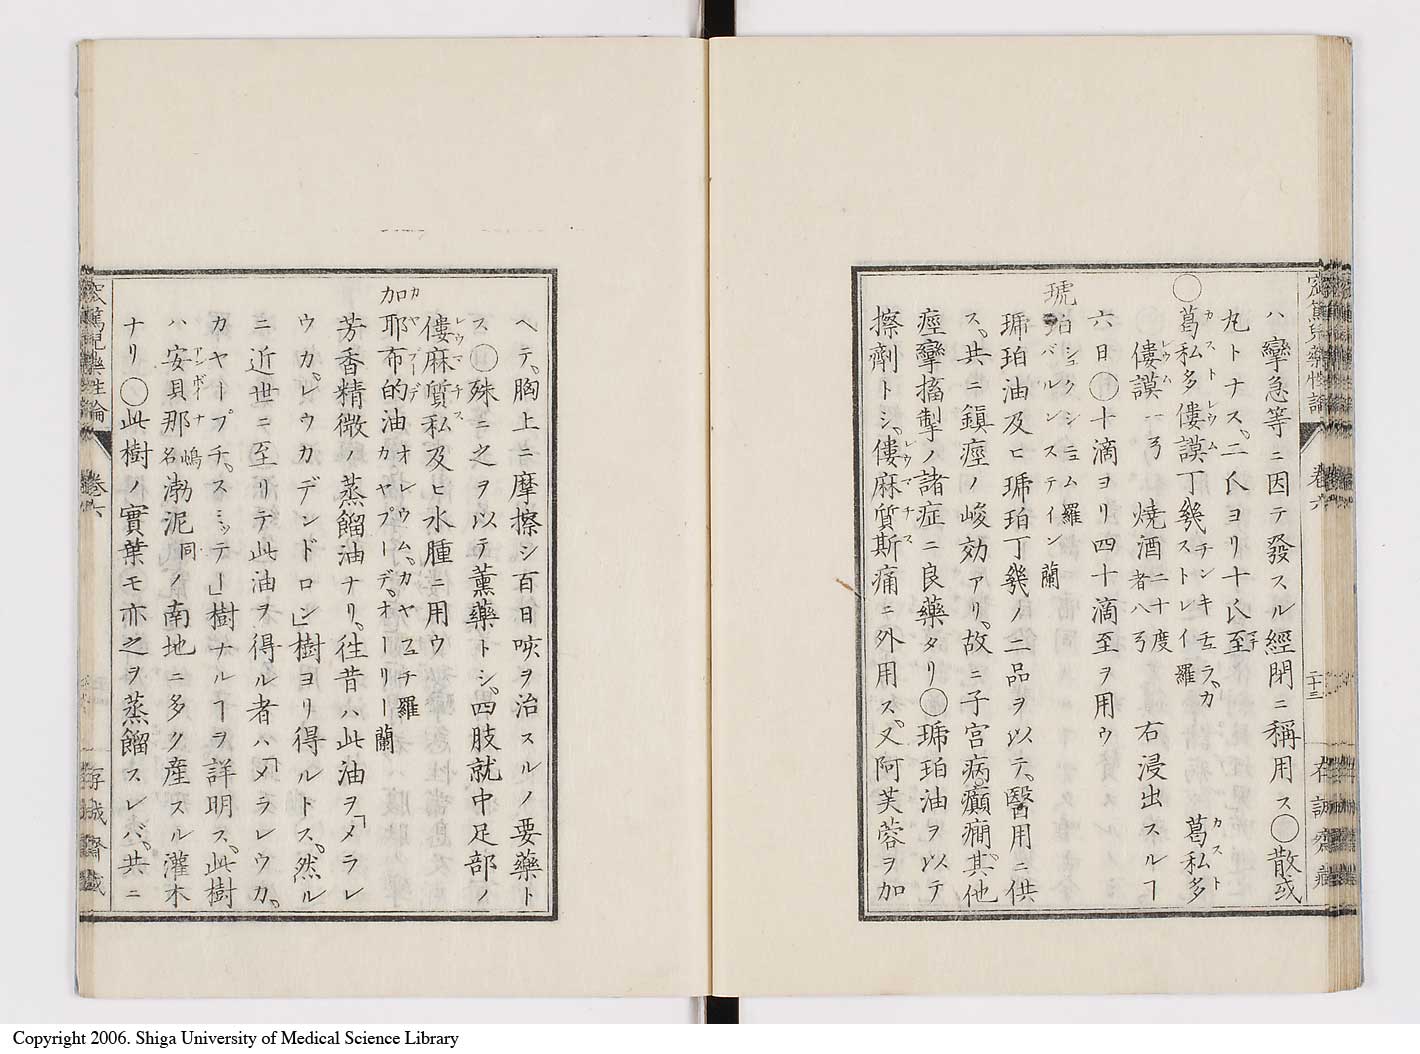 ハ攣急等ニ因テ發スル經閉ニ稱用ス○散或
丸トナス。二氏ヨリ十氏ニ至
○葛私多僂謨丁幾 カストレウム チンキ ストレイ 羅
僂謨一弓 燒酒二十度者八弓 右浸出スルヿ 葛私多
六日○十滴ヨリ四十滴至ヲ用ウ
琥珀 シュクシニュム 羅 バルンステイン 蘭
琥珀油及ヒ琥珀丁幾ノ二品ヲ以テ、醫用ニ供
ス。共ニ鎮痙ノ峻効アリ。故ニ子宮病。癲癇。其他
痙攣搐掣ノ諸症ニ良藥タリ○琥珀油ヲ以テ
擦劑トシ、僂麻質斯痛ニ外用ス。又阿芙蓉ヲ加
卷六
二十三
存誠齋藏
ヘテ、胸上ニ摩擦シ百日咳ヲ治スルノ要藥ト
ス○殊ニ之ヲ以テ薫藥トシ、四肢就中足部ノ
僂麻質私及ヒ水腫ニ用ウ
加耶布的油 カヤプーデ オレウム、カヤユチ 羅 カヤプーデ、オーリー 蘭
芳香精微ノ蒸餾油ナリ。往昔ハ此油ヲ「メラレ
ウカ。レウカデンドロン」樹ヨリ得ルトス。然ル
ニ近世ニ至リテ此油ヲ得ル者ハ「メラレウカ。
カヤープチ。スミッテ」樹ナルヿヲ詳明ス。此樹
ハ安貝那 アンボイナ 嶋名 渤泥同ノ南地ニ多ク産スル灌木
ナリ○此樹ノ實葉モ亦之ヲ蒸餾スレバ、共ニ
卷六
存誠齋藏
Copyright 2006. Shiga University of Medical Science Library